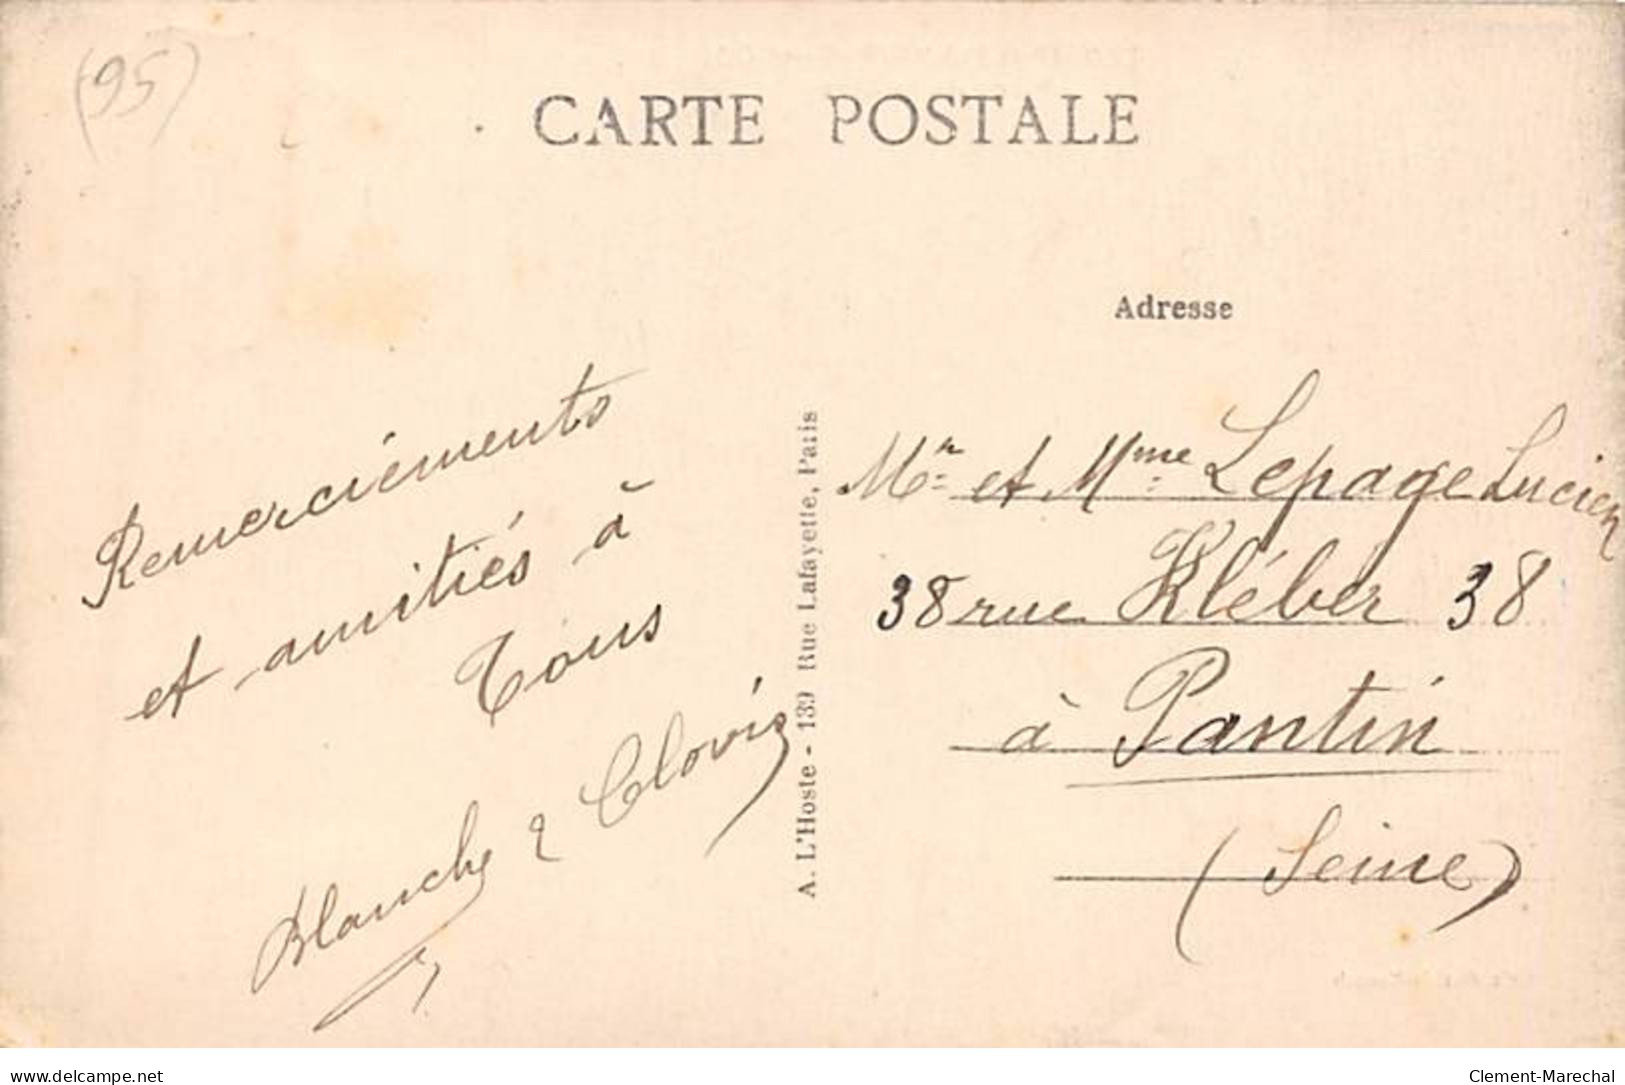 (95)
CARTE POSTALE
Adresse
Remerciements
et amitiés à
Tous
Blanche & Clovis
A. L'Hoste - 139 Rue Lafayette, Paris
Mr et Mme Lepage Lucien
38 rue Kléber 38
à Pantin
(Seine)
www.delcampe.net
Clement-Marechal